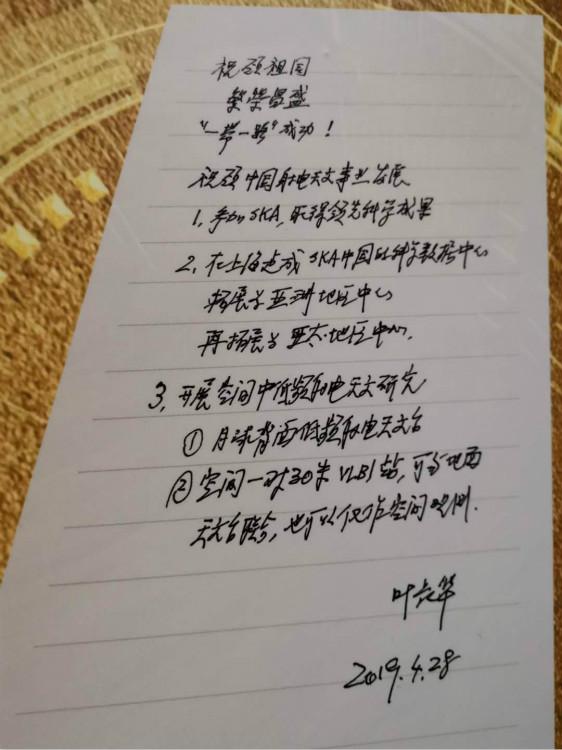 祝颂祖国
繁荣昌盛
“一带一路”成功！
祝颂中国射电天文事业发展
1，参加SKA，取得领先科学成果
2，在上海建成SKA中国区科学数据中心
拓展为亚洲地区中心
再拓展为亚太地区中心.
3，开展空间中低频射电天文研究
① 月球背面低频射电天文台
② 空间一对30米VLBI站，可与地面
天文台联合，也可以仅作空间观测.
叶叔华
2019.4.28